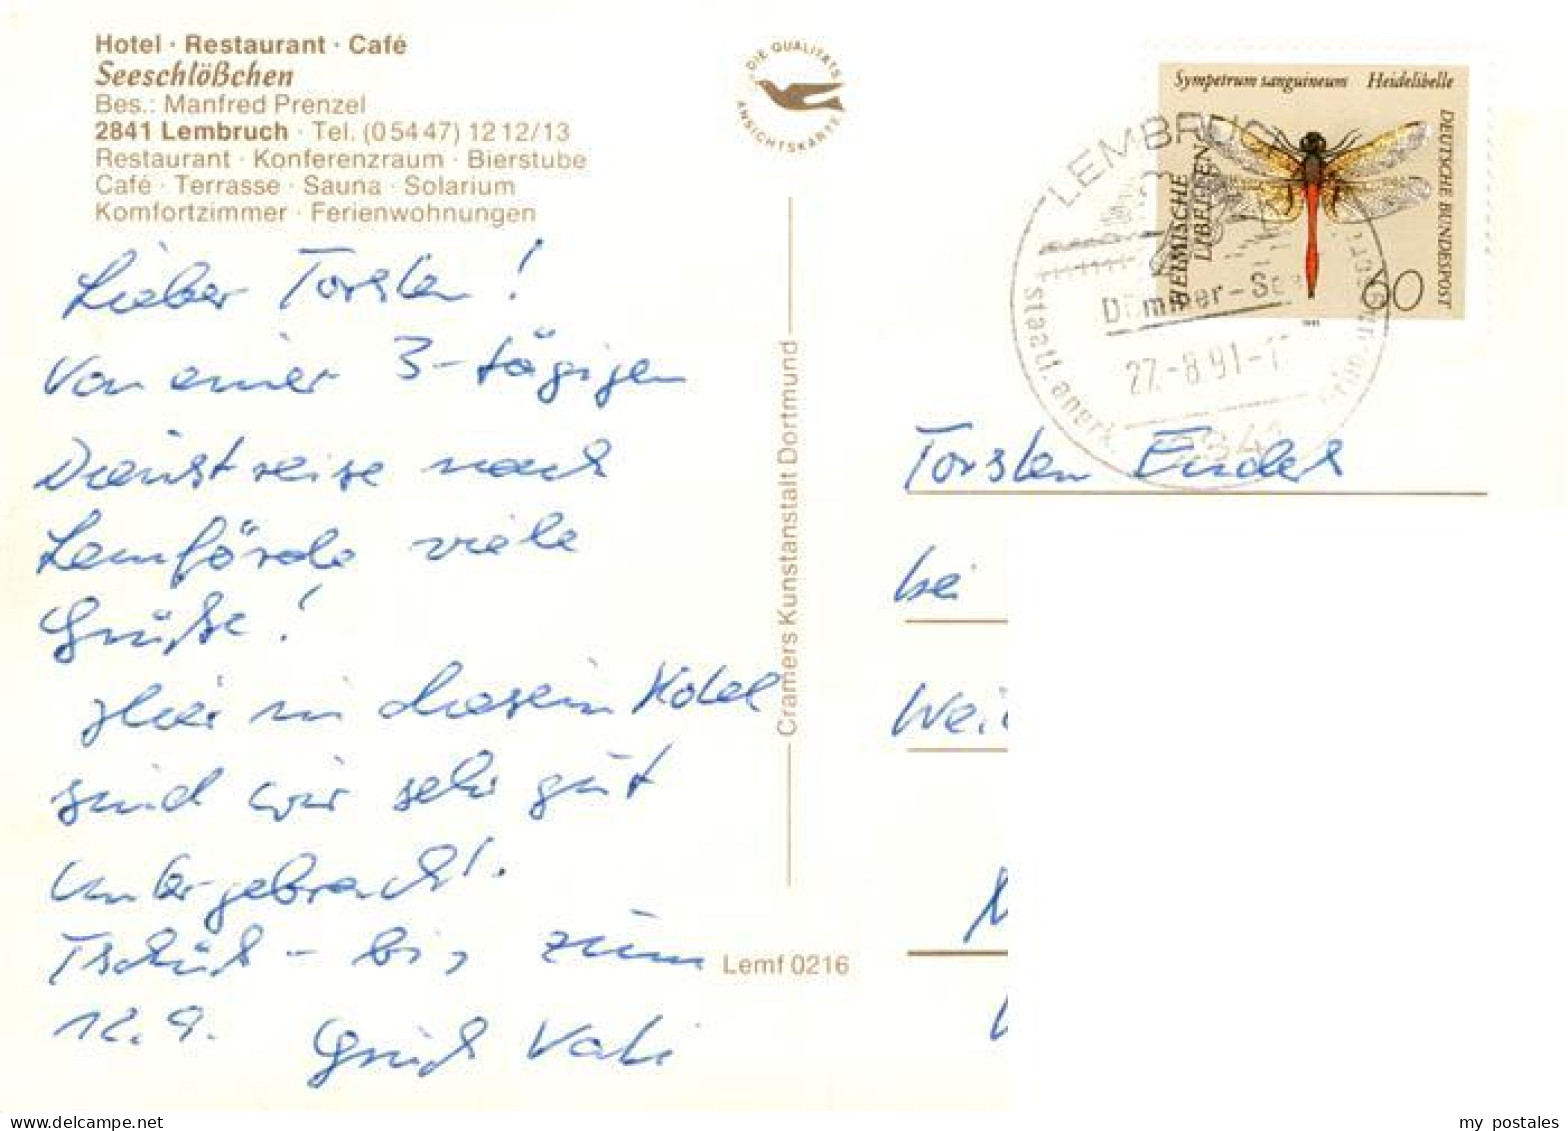 Hotel · Restaurant · Café
Seeschlößchen
Bes.: Manfred Prenzel
2841 Lembruch · Tel. (05447) 1212/13
Restaurant · Konferenzraum · Bierstube
Café · Terrasse · Sauna · Solarium
Komfortzimmer · Ferienwohnungen
Lieber Torsten!
Von einer 3-tägigen
Dienstreise nach
Lemförde viele
Grüße!
Hier in diesem Hotel
sind wir sehr gut
untergebracht.
Tschüß - bis zum
12.9.
Gruß Vati
DIE QUALITÄTS
ANSICHTSKARTE
Cramers Kunstanstalt Dortmund
Lemf 0216
Sympetrum sanguineum Heidelibelle
HEIMISCHE
LIBELLEN
DEUTSCHE BUNDESPOST
60
LEMBRUC
Dümmer-See
27.-8.91-1
staatl. anerk.
Torsten
bei
my_postales